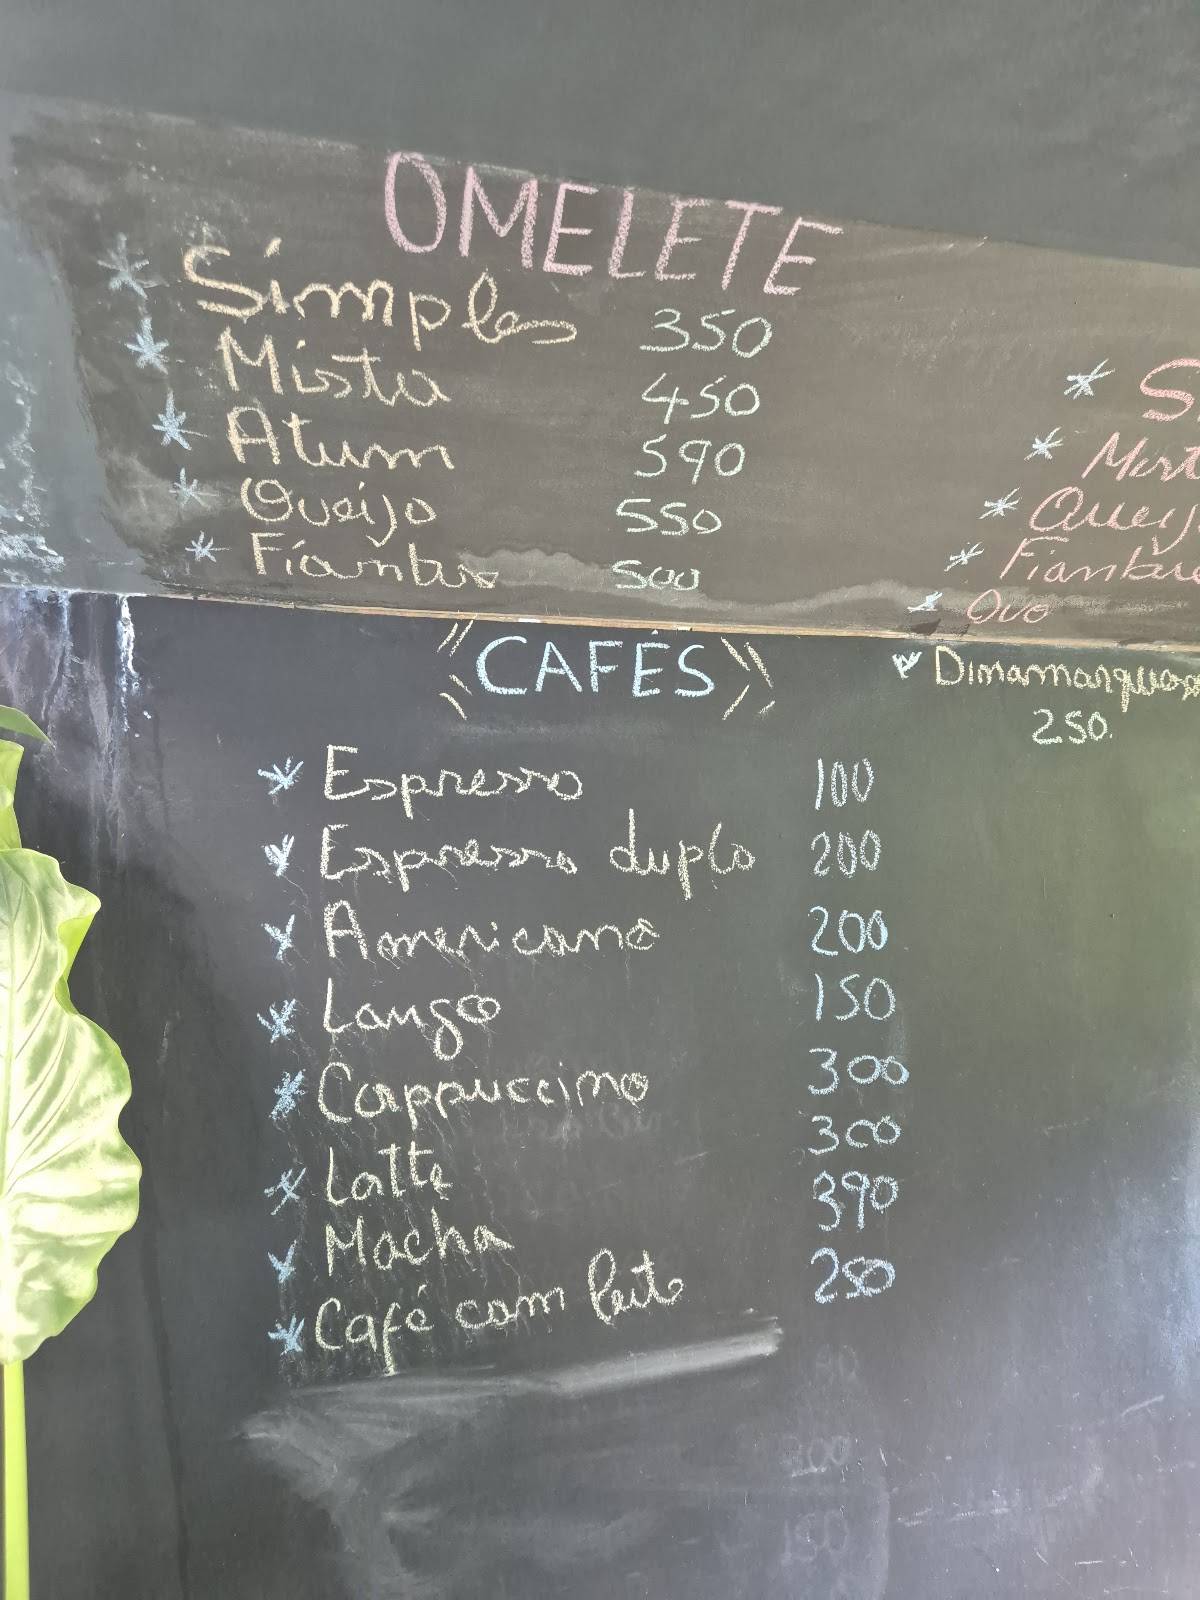 OMELETE
* Simples 350
* Mista 450
* Atum 590
* Queijo 550
* Fiambre 500
* S
* Mist
* Queij
* Fiambre
* Ovo
CAFÉS
* Dinamarquesa
250.
* Espresso 100
* Espresso duplo 200
* Americano 200
* Longo 150
* Cappuccino 300
* Latte 300
* Mocha 390
* Café com leite 250